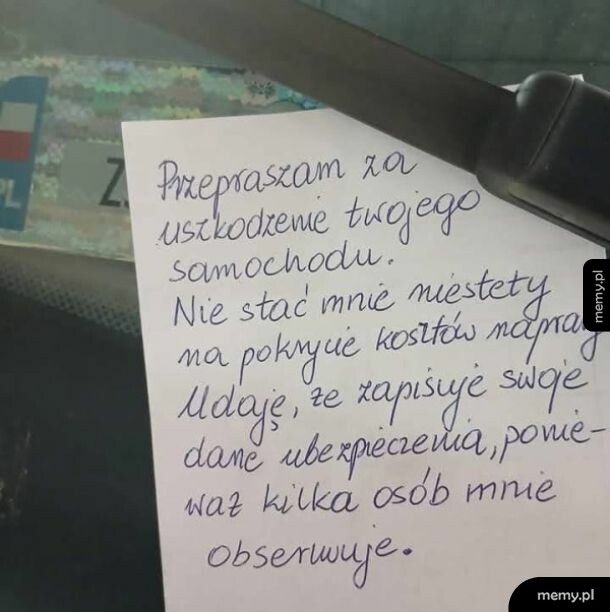 PL
Z
Przepraszam za
uszkodzenie twojego
samochodu.
Nie stać mnie niestety
na pokrycie kosztów
Udaję, że zapisuję swoje
dane ubezpieczenia, ponie-
waż kilka osób mnie
obserwuje.
memy.pl
memy.pl